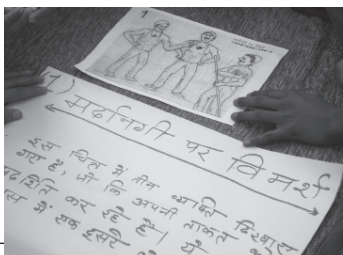 1
1) मर्दानगी पर विमर्श
इस चित्र में तीन व्यक्ति दिखाए
गए हैं, जो कि अपनी ताकत
कर रहे हैं। ये
में एक दूसरे